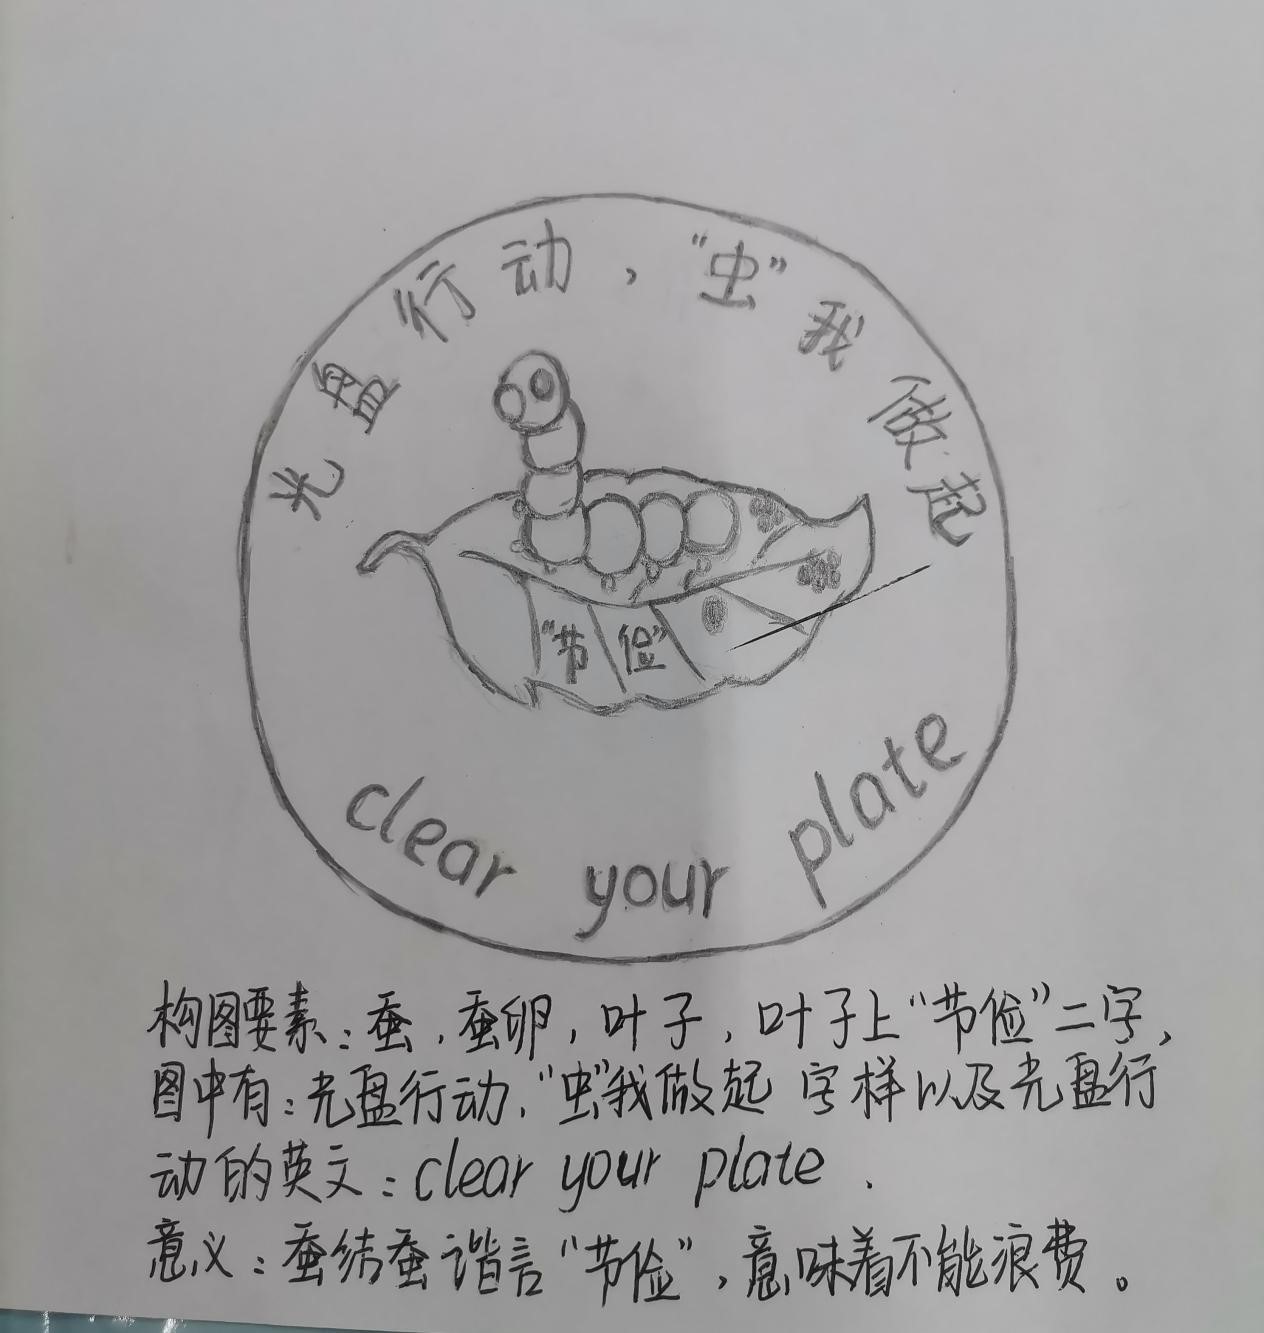 光盘行动，“虫”我做起
“节俭”
clear your plate
构图要素：蚕，蚕卵，叶子，叶子上“节俭”二字，
图中有：光盘行动，“虫”我做起 字样以及光盘行
动的英文：clear your plate .
意义：蚕结蚕谐言“节俭”，意味着不能浪费。